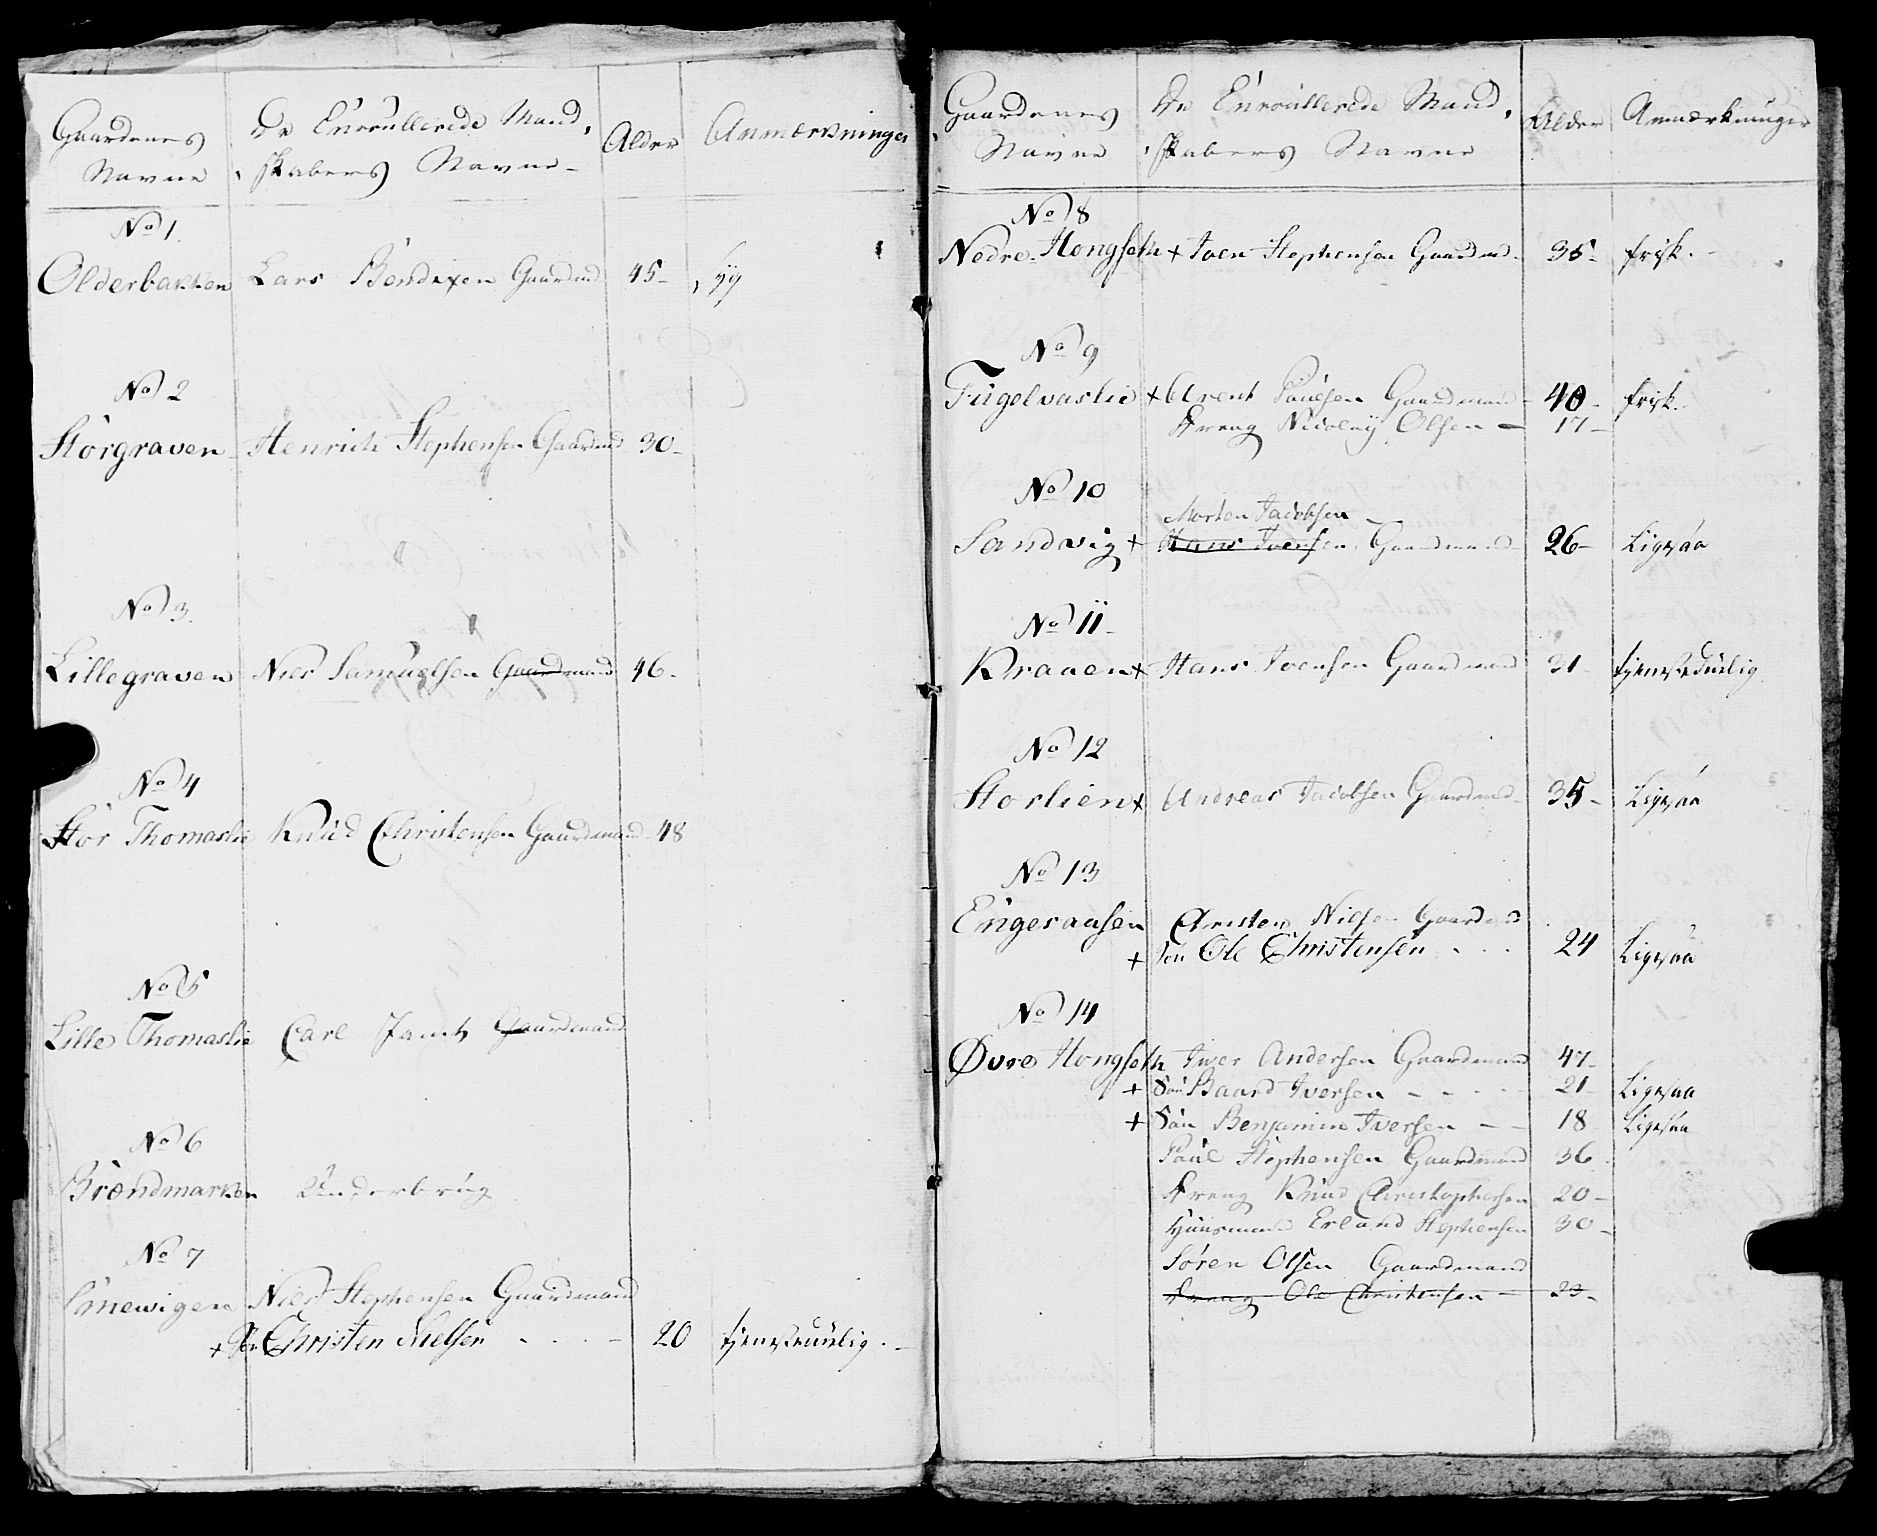 Gaardenes De Enroullerede Mand, Alder Anmærkninger
Navne skabers Navne
No 1
Olderbakken Lars Bendixen Gaardmd 45
No 2
Storgraven Henrich Stephensen Gaardmd 30
No 3
Lillegraven Niels Samuelsen Gaardmand 46
No 4
Stor Thomaslie Knud Christensen Gaardmand 48
No 5
Lille Thomaslie Carl Gaardmand
No 6
Brændmarken Underbrug
No 7
Niels Stephensen Gaardmand
+ Søn Christen Nielsen 20 tjenstduelig
Gaardenes De Enroullerede Mand, Alder Anmærkninger
Navne skabers Navne
No 8
Nedre Hongseth + Iver Stephensen Gaardmd 35 frisk
No 9
Fugelvaslie + Arent Paulsen Gaardmand 40 frisk
Dreng Nicolay Olsen 17
No 10
Morten Jacobsen
Sandvig + Hans Iversen Gaardmand 26 Ligesaa
No 11
Kraaen + Hans Iversen Gaardmand 31 tjenstduelig
No 12
Storlien + Andreas Jacobsen Gaardmd 35 Ligesaa
No 13
Engesaasen Christen Nielsen Gaardmd
+ Søn Ole Christensen 24 Ligesaa
No 14
Øvre Hongseth Iver Andersen Gaardmand 47
+ Søn Baard Iversen 21 Ligesaa
+ Søn Benjamin Iversen 18 Ligesaa
Paul Stephensen Gaardmand 36
Dreng Knud Christophersen 20
Huusmand Erland Stephensen 30
Søren Olsen Gaardmand
Dreng Ole Christensen 23